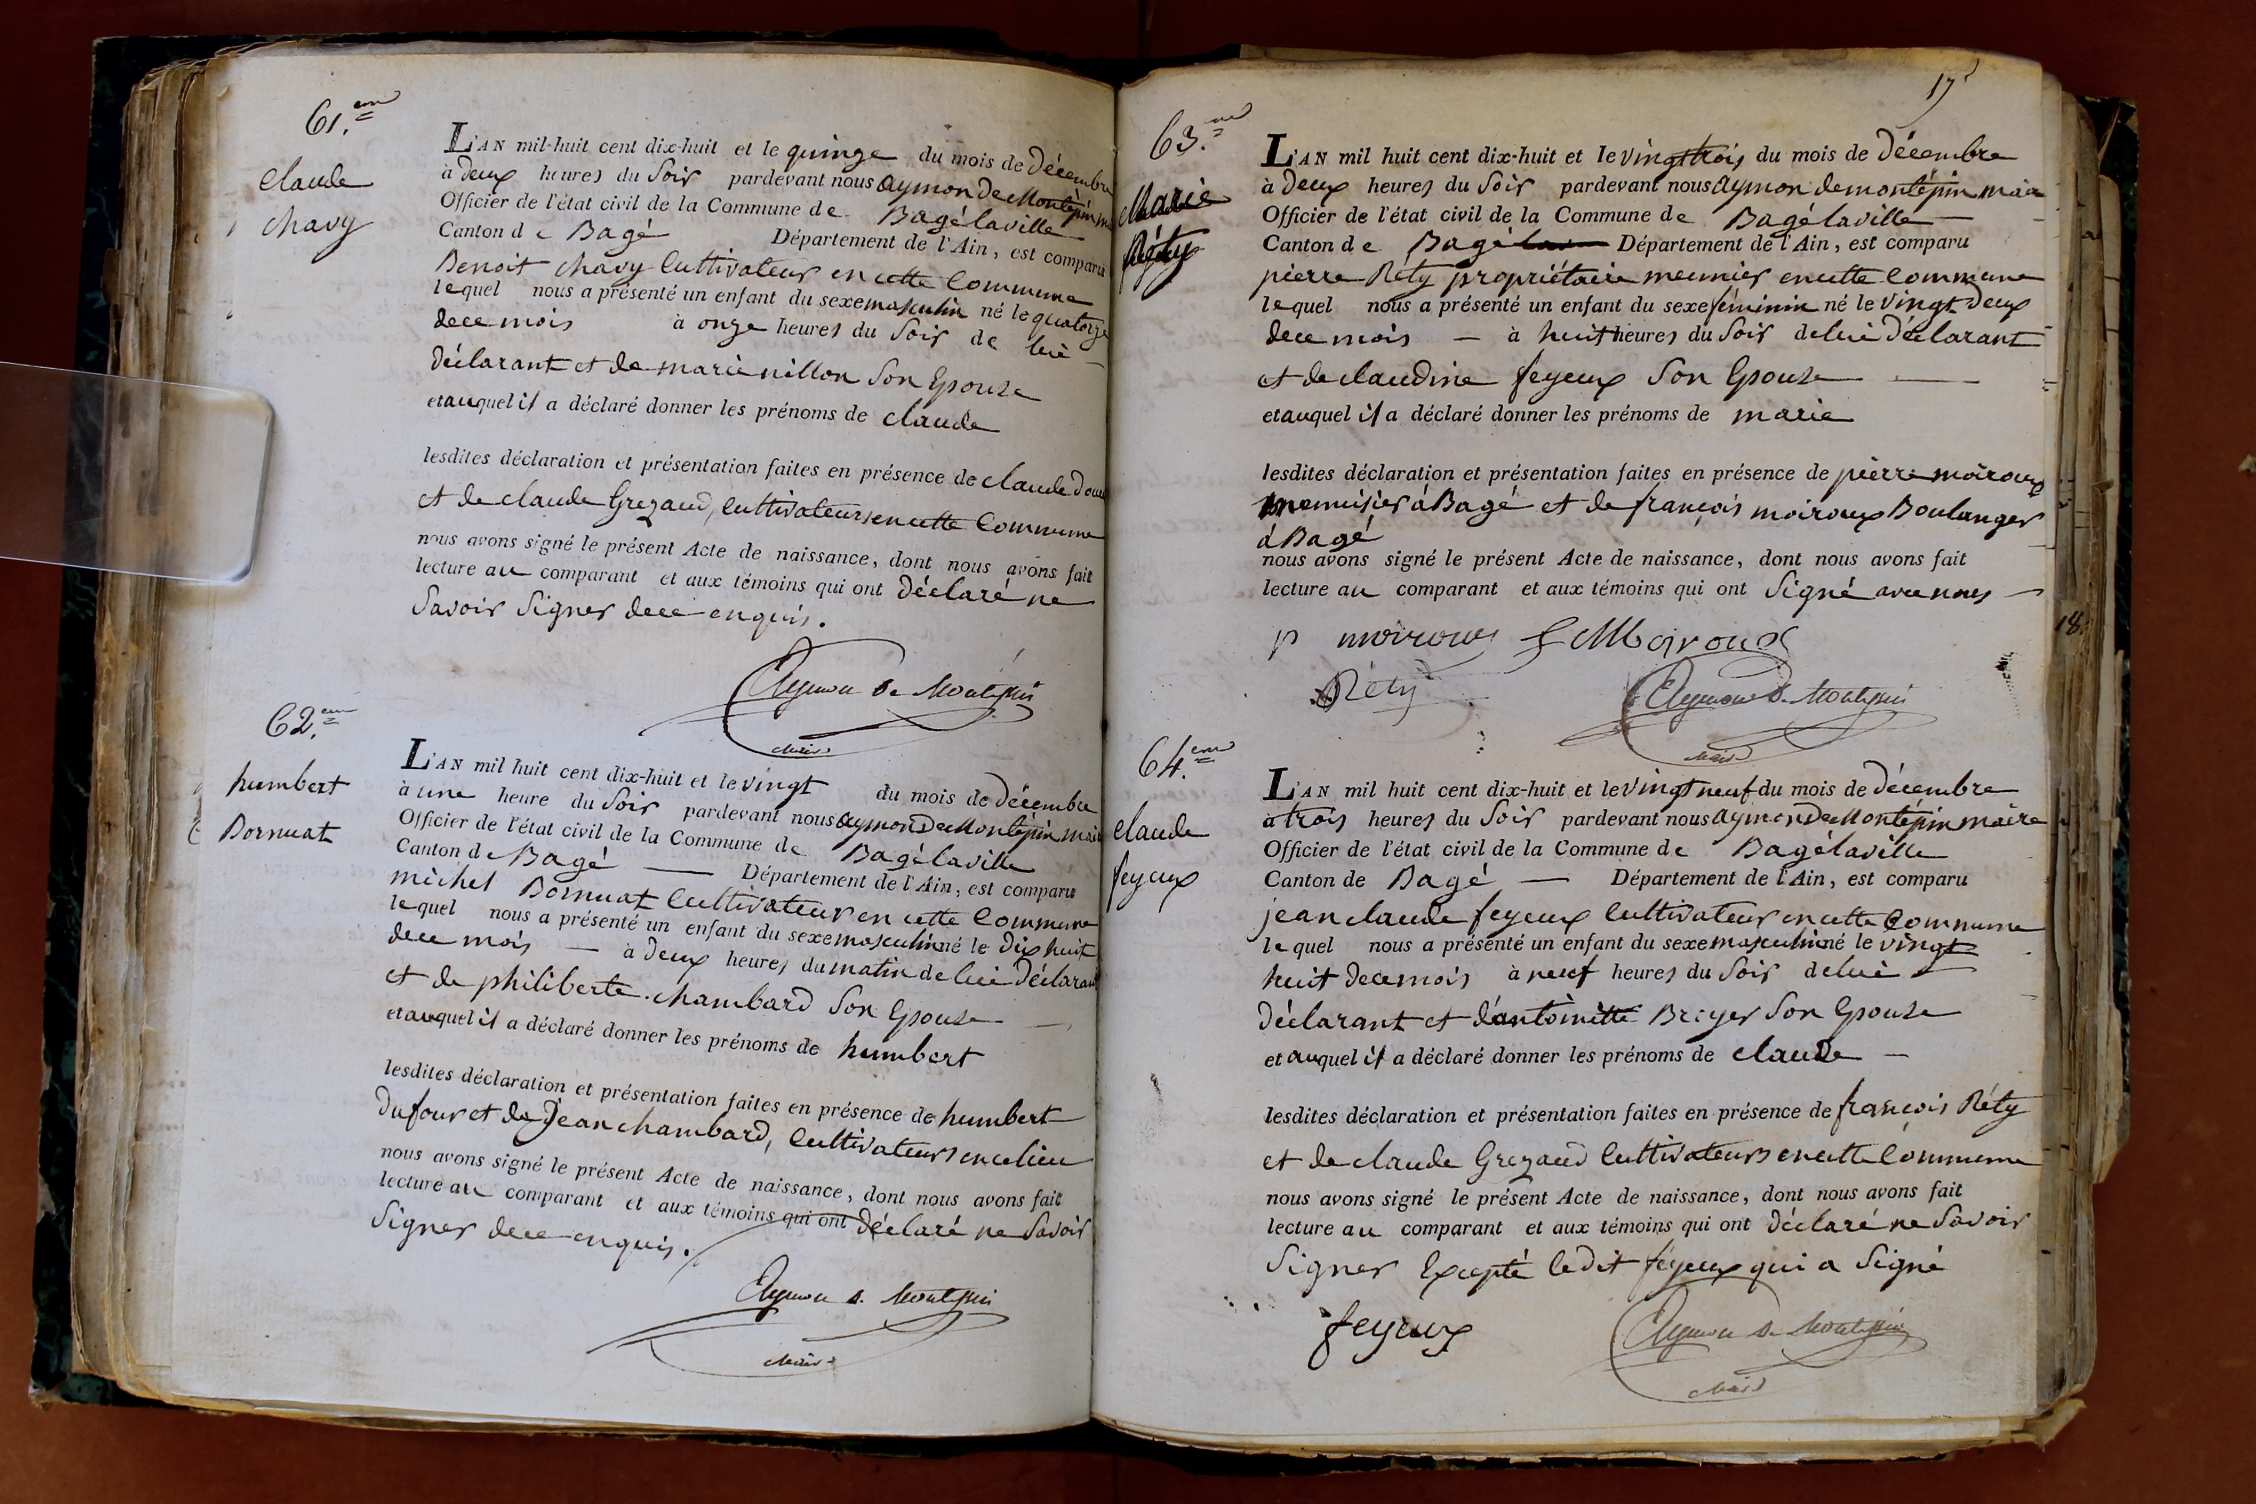 61.em
claude
chavy
L'AN mil-huit cent dix-huit et le quinze du mois de décembre
à deux heures du Soir pardevant nous aymon De Montépin
Officier de l'état civil de la Commune de Bagélaville
Canton de Bagé Département de l'Ain, est comparu
Benoit chavy Cultivateur en cette Commune
lequel nous a présenté un enfant du sexe masculin né le quatorze
de ce mois à onze heures du Soir de lui
déclarant et de marie nillon Son Epouse
et auquel il a déclaré donner les prénoms de claude
lesdites déclaration et présentation faites en présence de claude
et de claude Grezaud, Cultivateurs en cette Commune
nous avons signé le présent Acte de naissance, dont nous avons fait
lecture au comparant et aux témoins qui ont déclaré ne
Savoir Signer de ce enquis.
Aymon de Montépin
Maire
62.em
humbert
Bornuat
L'AN mil huit cent dix-huit et le vingt du mois de décembre
à une heure du Soir pardevant nous aymon De Montépin maire
Officier de l'état civil de la Commune de Bagélaville
Canton de Bagé — Département de l'Ain, est comparu
michel Bornuat Cultivateur en cette Commune
lequel nous a présenté un enfant du sexe masculin né le dix huit
de ce mois — à deux heures du matin de lui déclarant
et de philiberte chambard Son Epouse —
et auquel il a déclaré donner les prénoms de humbert
lesdites déclaration et présentation faites en présence de humbert
Dufour et de Jean chambard, Cultivateurs en ce lieu
nous avons signé le présent Acte de naissance, dont nous avons fait
lecture au comparant et aux témoins qui ont déclaré ne Savoir
Signer de ce enquis.
Aymon d. Montépin
Maire
17
63.me
Marie
Réty
L'AN mil huit cent dix-huit et le vingt trois du mois de décembre
à deux heures du Soir pardevant nous aymon demontépin maire
Officier de l'état civil de la Commune de Bagélaville —
Canton de Bagé Département de l'Ain, est comparu
pierre Réty propriétaire meunier en cette Commune
lequel nous a présenté un enfant du sexe féminin né le vingt deux
de ce mois — à huit heures du Soir de lui déclarant
et de claudine feyeux Son Epouse —
et auquel il a déclaré donner les prénoms de marie
lesdites déclaration et présentation faites en présence de pierre moiroux
menuisier à Bagé et de françois moiroux Boulanger
à Bagé
nous avons signé le présent Acte de naissance, dont nous avons fait
lecture au comparant et aux témoins qui ont Signé avec nous —
p moiroux f Moiroux
Réty Aymon d. Montépin
Maire
18
64.em
claude
feyeux
L'AN mil huit cent dix-huit et le vingt neuf du mois de décembre
à trois heures du Soir pardevant nous aymon De Montépin maire
Officier de l'état civil de la Commune de Bagélaville
Canton de Bagé — Département de l'Ain, est comparu
jean claude feyeux Cultivateur en cette Commune
lequel nous a présenté un enfant du sexe masculin né le vingt
huit de ce mois à neuf heures du Soir de lui —
déclarant et d'antoinette Broyer Son Epouse
et auquel il a déclaré donner les prénoms de claude —
lesdites déclaration et présentation faites en présence de françois Réty
et de claude Grezaud Cultivateurs en cette Commune
nous avons signé le présent Acte de naissance, dont nous avons fait
lecture au comparant et aux témoins qui ont déclaré ne Savoir
Signer Excepté ledit feyeux qui a Signé
feyeux Aymon d. Montépin
Maire